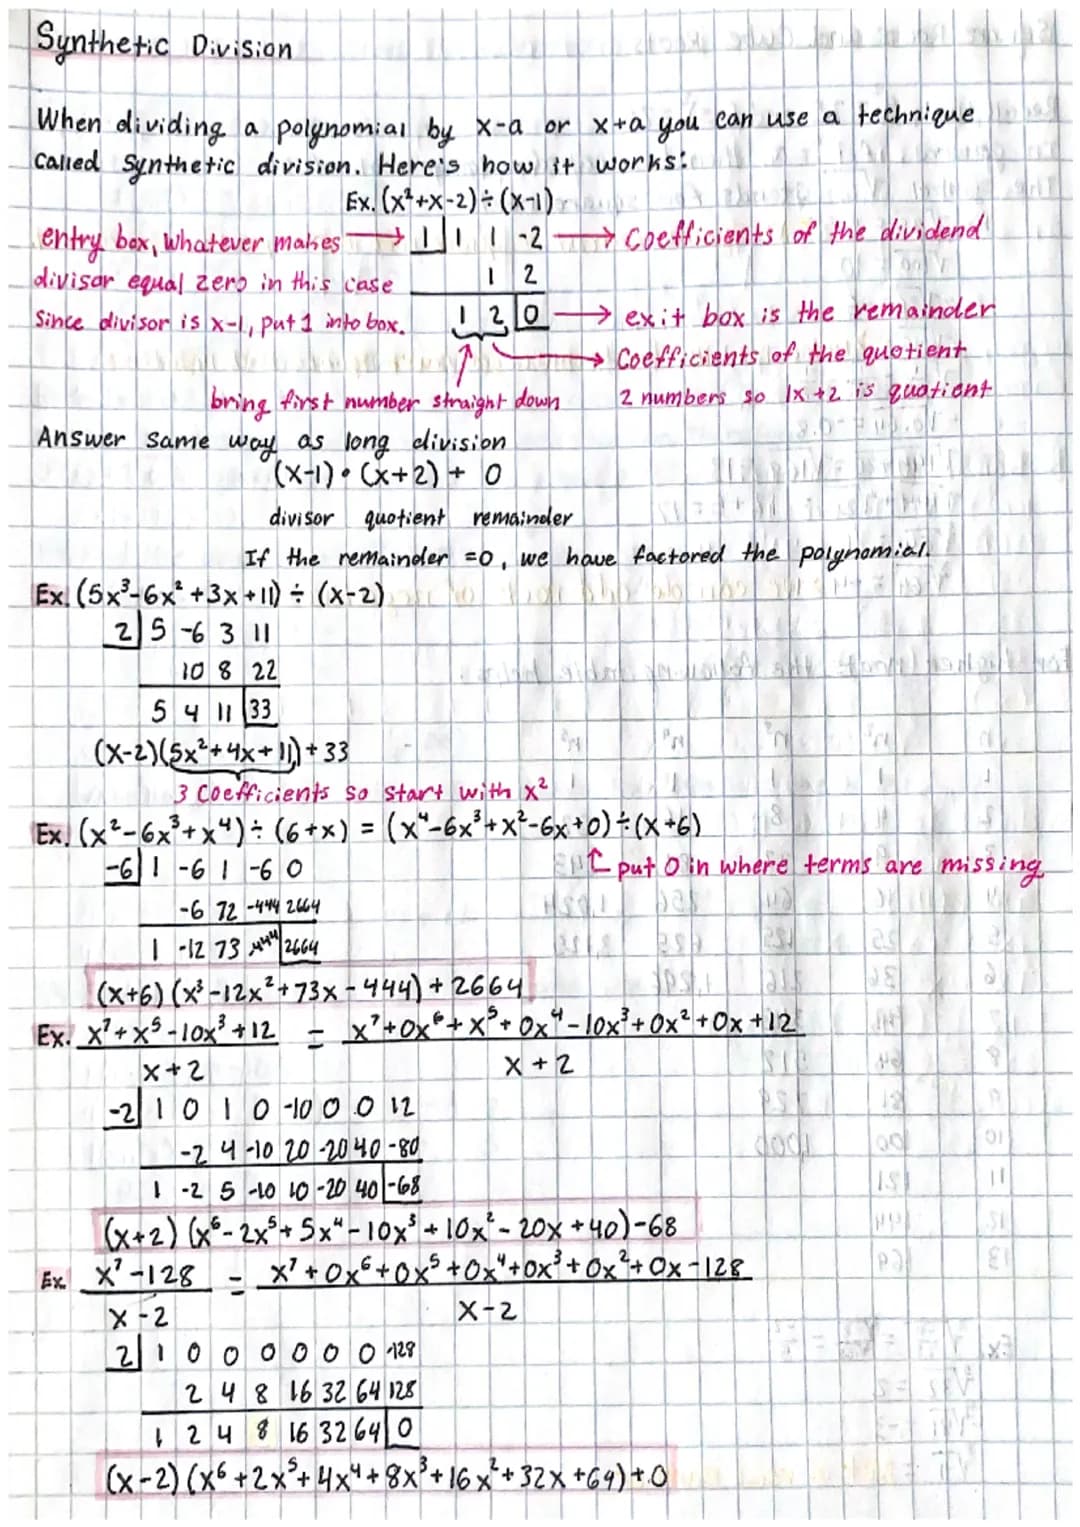 Synthetic Division
When dividing a polynomial by x-a or x+a you can use a technique
called synthetic division. Here's how it works:
Ex. (x²+x-2)÷(x-1)
entry box, whatever makes → 1| 1 1 -2 → Coefficients of the dividend
divisor equal zero in this case 1 2
since divisor is x-1, put 1 into box. 1 2 |0 → exit box is the remainder
→ Coefficients of the quotient
bring first number straight down 2 numbers so 1x+2 is quotient
Answer same way as long division
(x-1)•(x+2)+ 0
divisor quotient remainder
If the remainder =0, we have factored the polynomial.
Ex. (5x³-6x²+3x+11) ÷ (x-2)
2| 5 -6 3 11
10 8 22
5 4 11 |33
(x-2)(5x²+4x+11)+33
3 coefficients so start with x²
Ex. (x²-6x³+x⁴)÷(6+x) = (x⁴-6x³+x²-6x+0)÷(x+6)
-6| 1 -6 1 -6 0 ↑ put 0 in where terms are missing
-6 72 -444 2664
1 -12 73 -444 |2664
(x+6)(x³-12x²+73x-444)+2664
Ex. x⁷+x⁵-10x³+12 = x⁷+0x⁶+x⁵+0x⁴-10x³+0x²+0x+12
x+2 x+2
-2| 1 0 1 0 -10 0 0 12
-2 4 -10 20 -20 40 -80
1 -2 5 -10 10 -20 40 |-68
(x+2)(x⁶-2x⁵+5x⁴-10x³+10x²-20x+40)-68
Ex. x⁷-128 = x⁷+0x⁶+0x⁵+0x⁴+0x³+0x²+0x-128
x-2 x-2
2| 1 0 0 0 0 0 0 -128
2 4 8 16 32 64 128
1 2 4 8 16 32 64 |0
(x-2)(x⁶+2x⁵+4x⁴+8x³+16x²+32x+64)+0